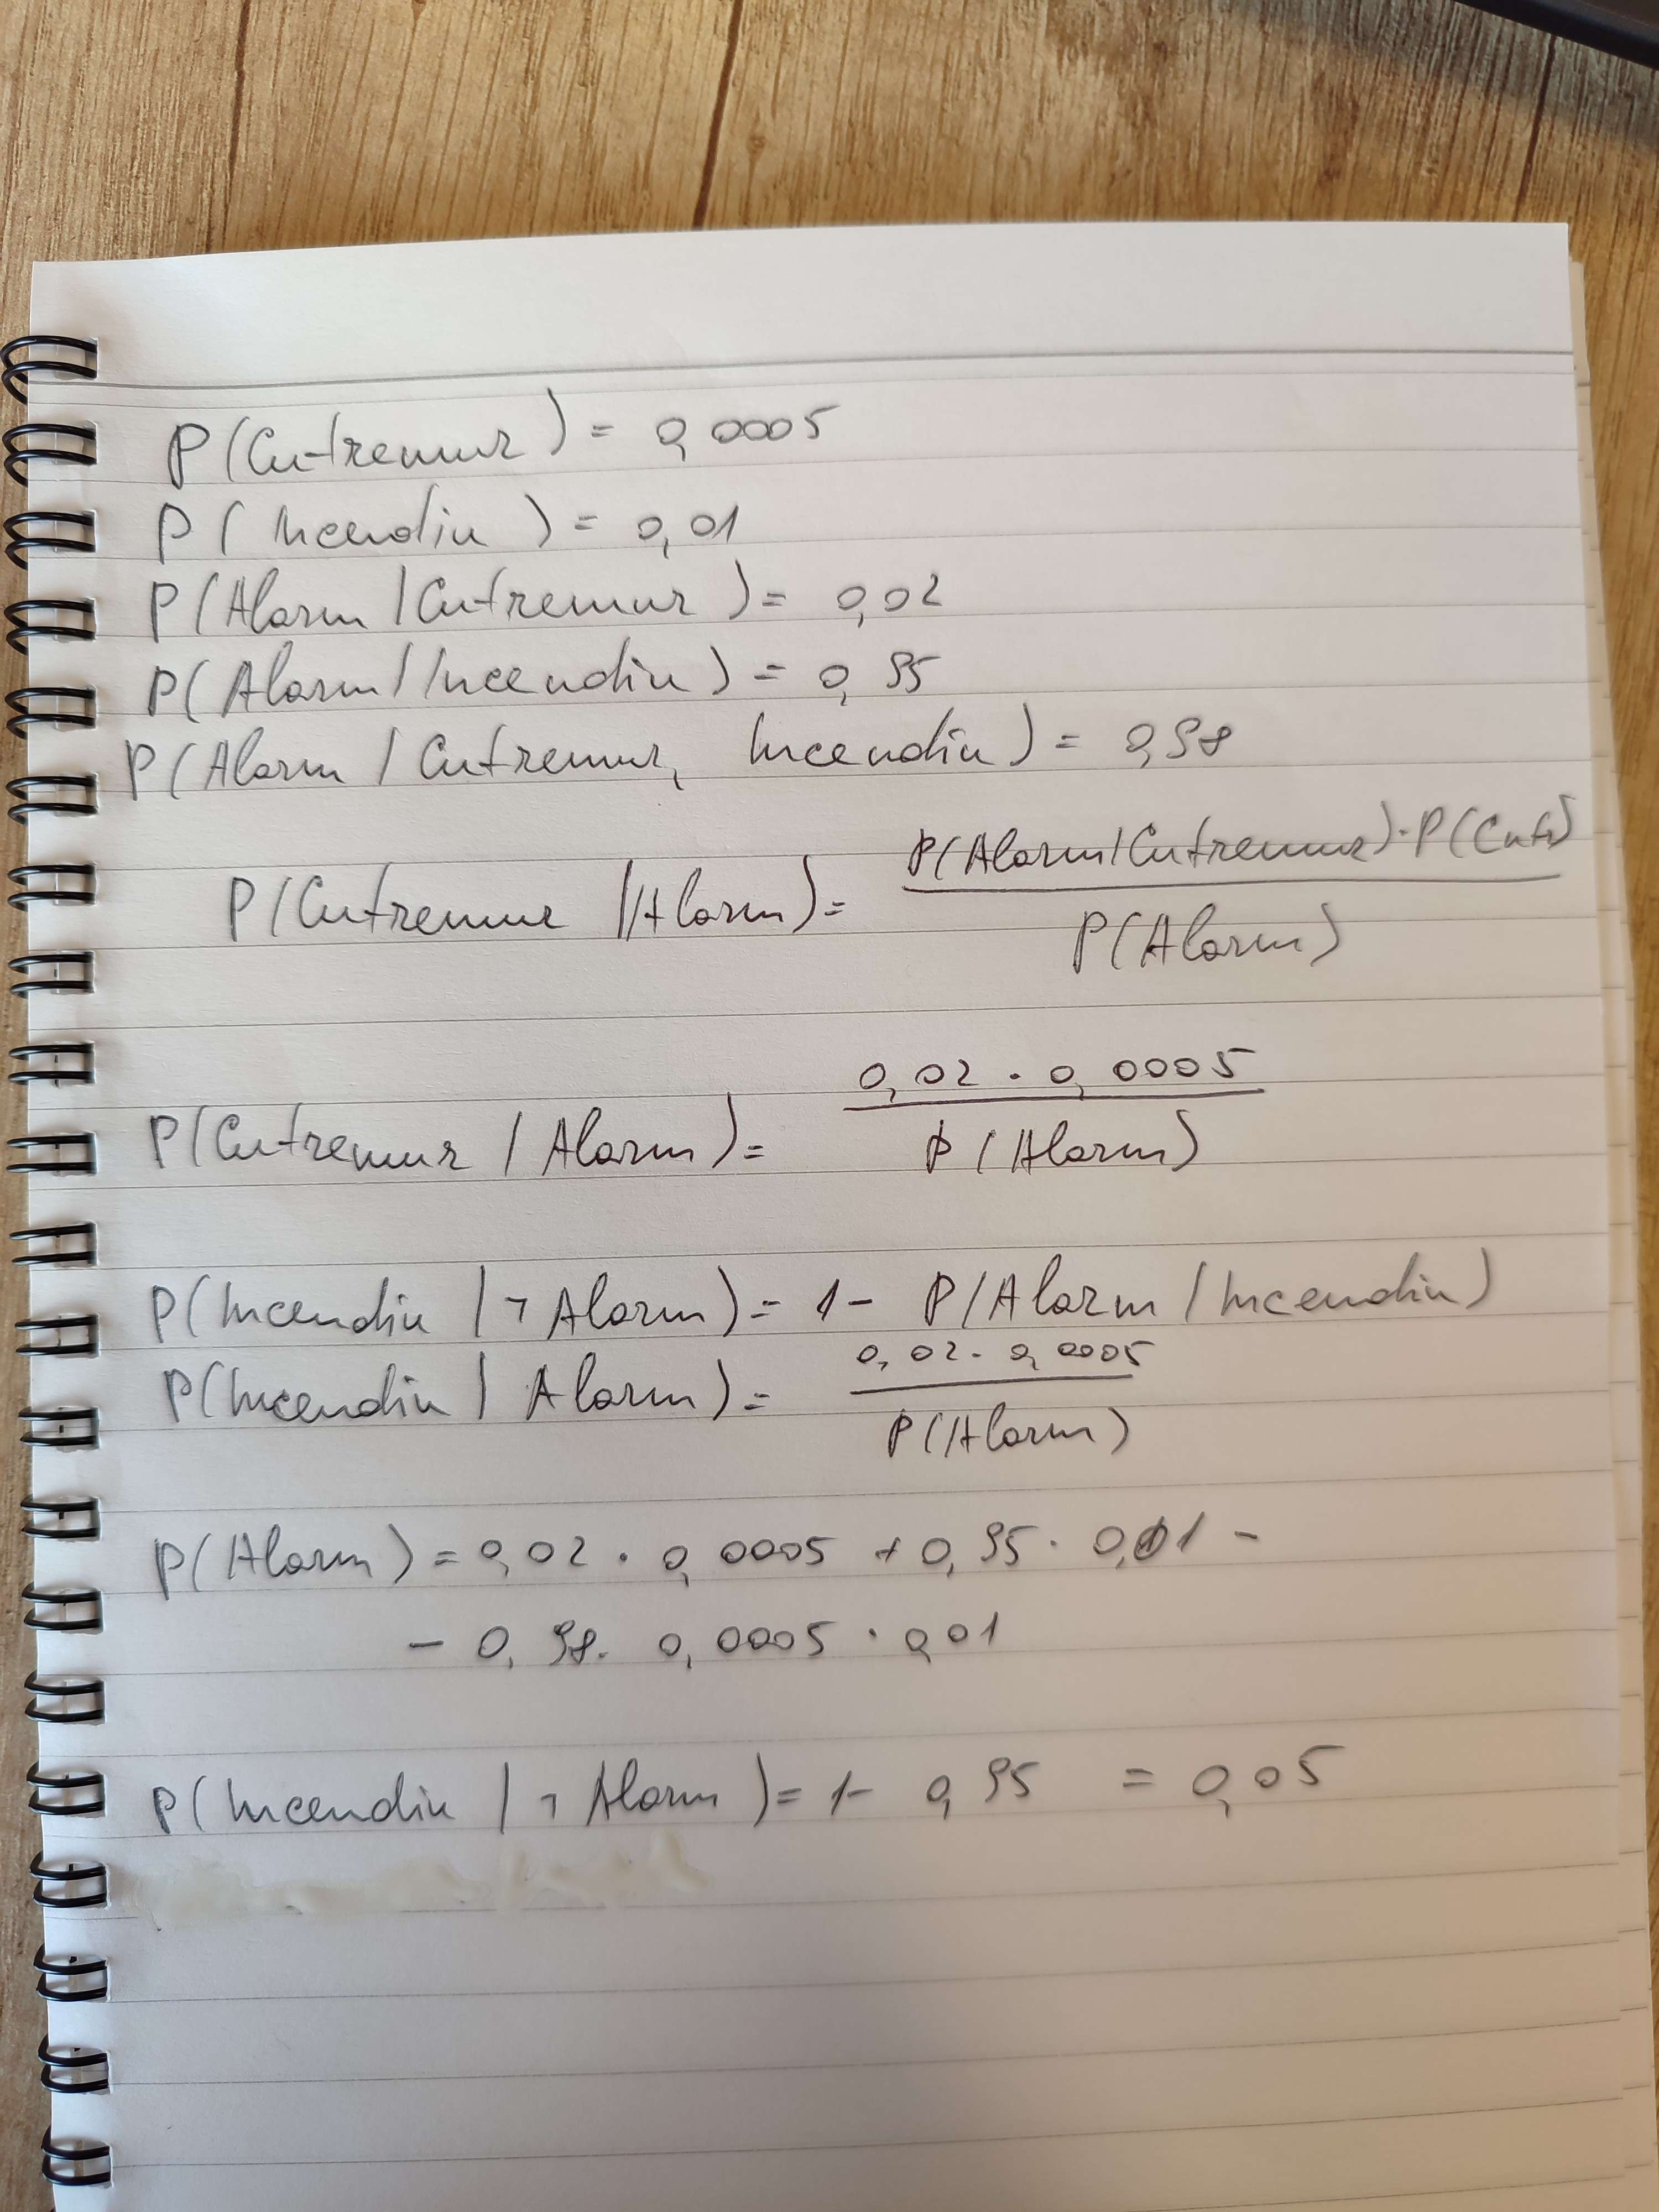 P(Cutremur) = 0,0005
P(Incendiu) = 0,01
P(Alarm | Cutremur) = 0,02
P(Alarm | Incendiu) = 0,95
P(Alarm | Cutremur, Incendiu) = 0,98
P(Alarm|Cutremur)·P(Cutr)
P(Cutremur | Alarm) =
P(Alarm)
0,02 · 0,0005
P(Cutremur | Alarm) =
P(Alarm)
P(Incendiu | ¬ Alarm) = 1 - P(Alarm | Incendiu)
0,02 · 0,0005
P(Incendiu | Alarm) =
P(Alarm)
P(Alarm) = 0,02 · 0,0005 + 0,95 · 0,01 -
- 0,98 · 0,0005 · 0,01
P(Incendiu | ¬ Alarm) = 1 - 0,95 = 0,05